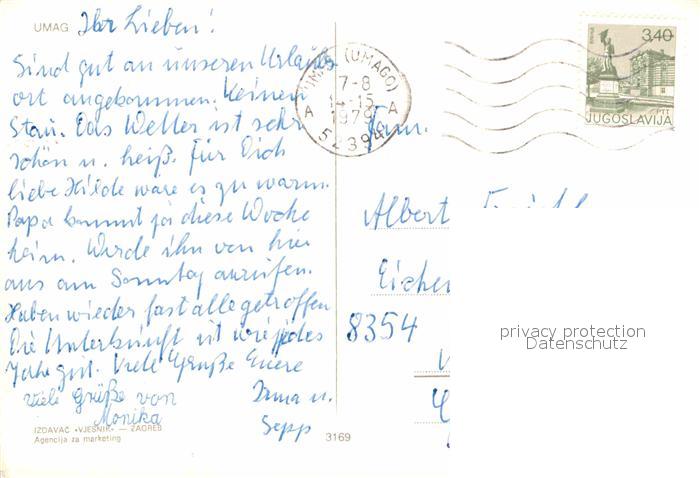 UMAG
Ihr Lieben!
Sind gut an unseren Urlaubs
ort angekommen. Keinen
Stau. Das Wetter ist sehr
schön u. heiß. Für Dich
liebe Hilde wäre es zu warm.
Papa kommt ja diese Woche
heim. Werde ihn von hier
aus am Sonntag anrufen.
Haben wieder fast alle getroffen
Die Unterkunft ist wie jedes
Jahr gut. Viele Grüße Euere
Viele Grüße von
Monika
Irma u.
Sepp
IZDAVAČ «VJESNIK» — ZAGREB
Agencija za marketing
3169
UMAG (UMAGO)
7-8
A 14-15 A
1979
52394
3,40
PTT
JUGOSLAVIJA
Fam.
Albert
Eichen
8354
privacy protection
Datenschutz